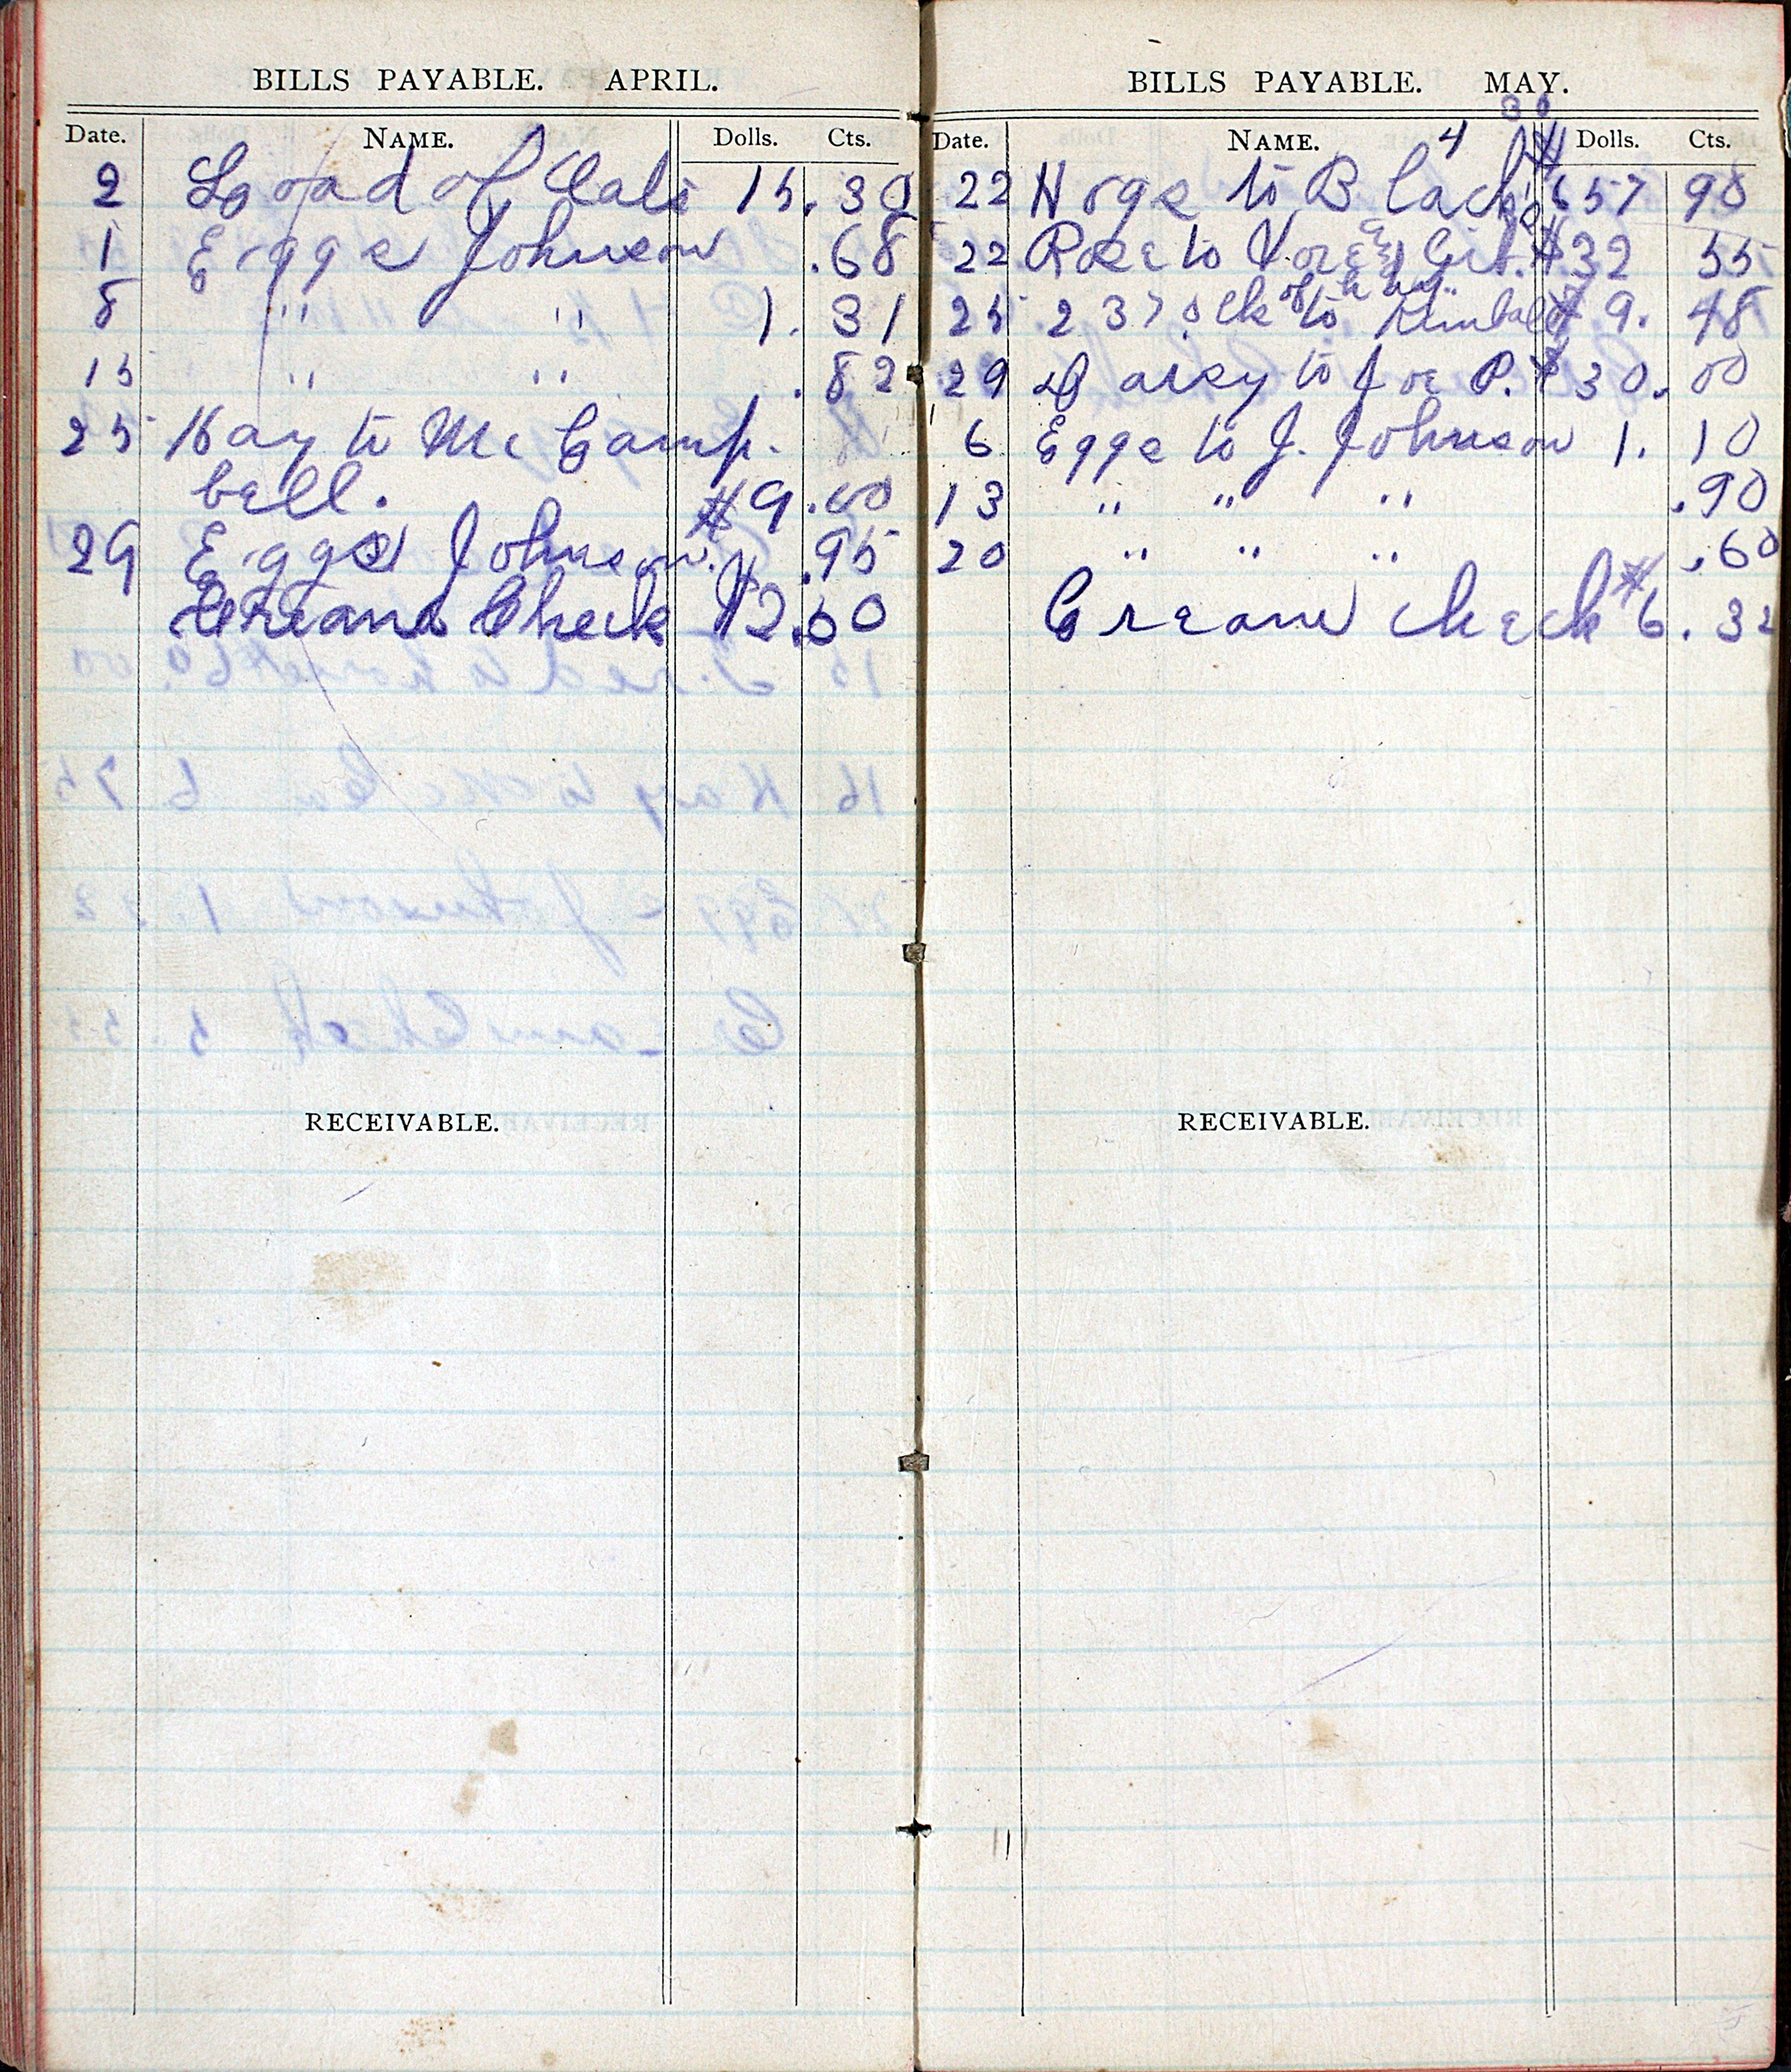 BILLS PAYABLE. APRIL.
Date. NAME. Dolls. Cts.
2 Load of Oats 15.30
1 Eggs Johnson .68
8 " " 1.31
15 " " .82
25 Hay to Mc Camp-
bell. $9.00
29 Eggs Johnson. .95
Cream Check $2.60
RECEIVABLE.
BILLS PAYABLE. MAY.
Date. NAME. Dolls. Cts.
22 Hogs to Black 57 90
22 Rose to $32 55
25 to Kimball $9.48
29 Daisy to Joe P. $30.00
6 Eggs to J. Johnson 1.10
13 " " " .90
20 " " " .60
Cream check $6.32
RECEIVABLE.